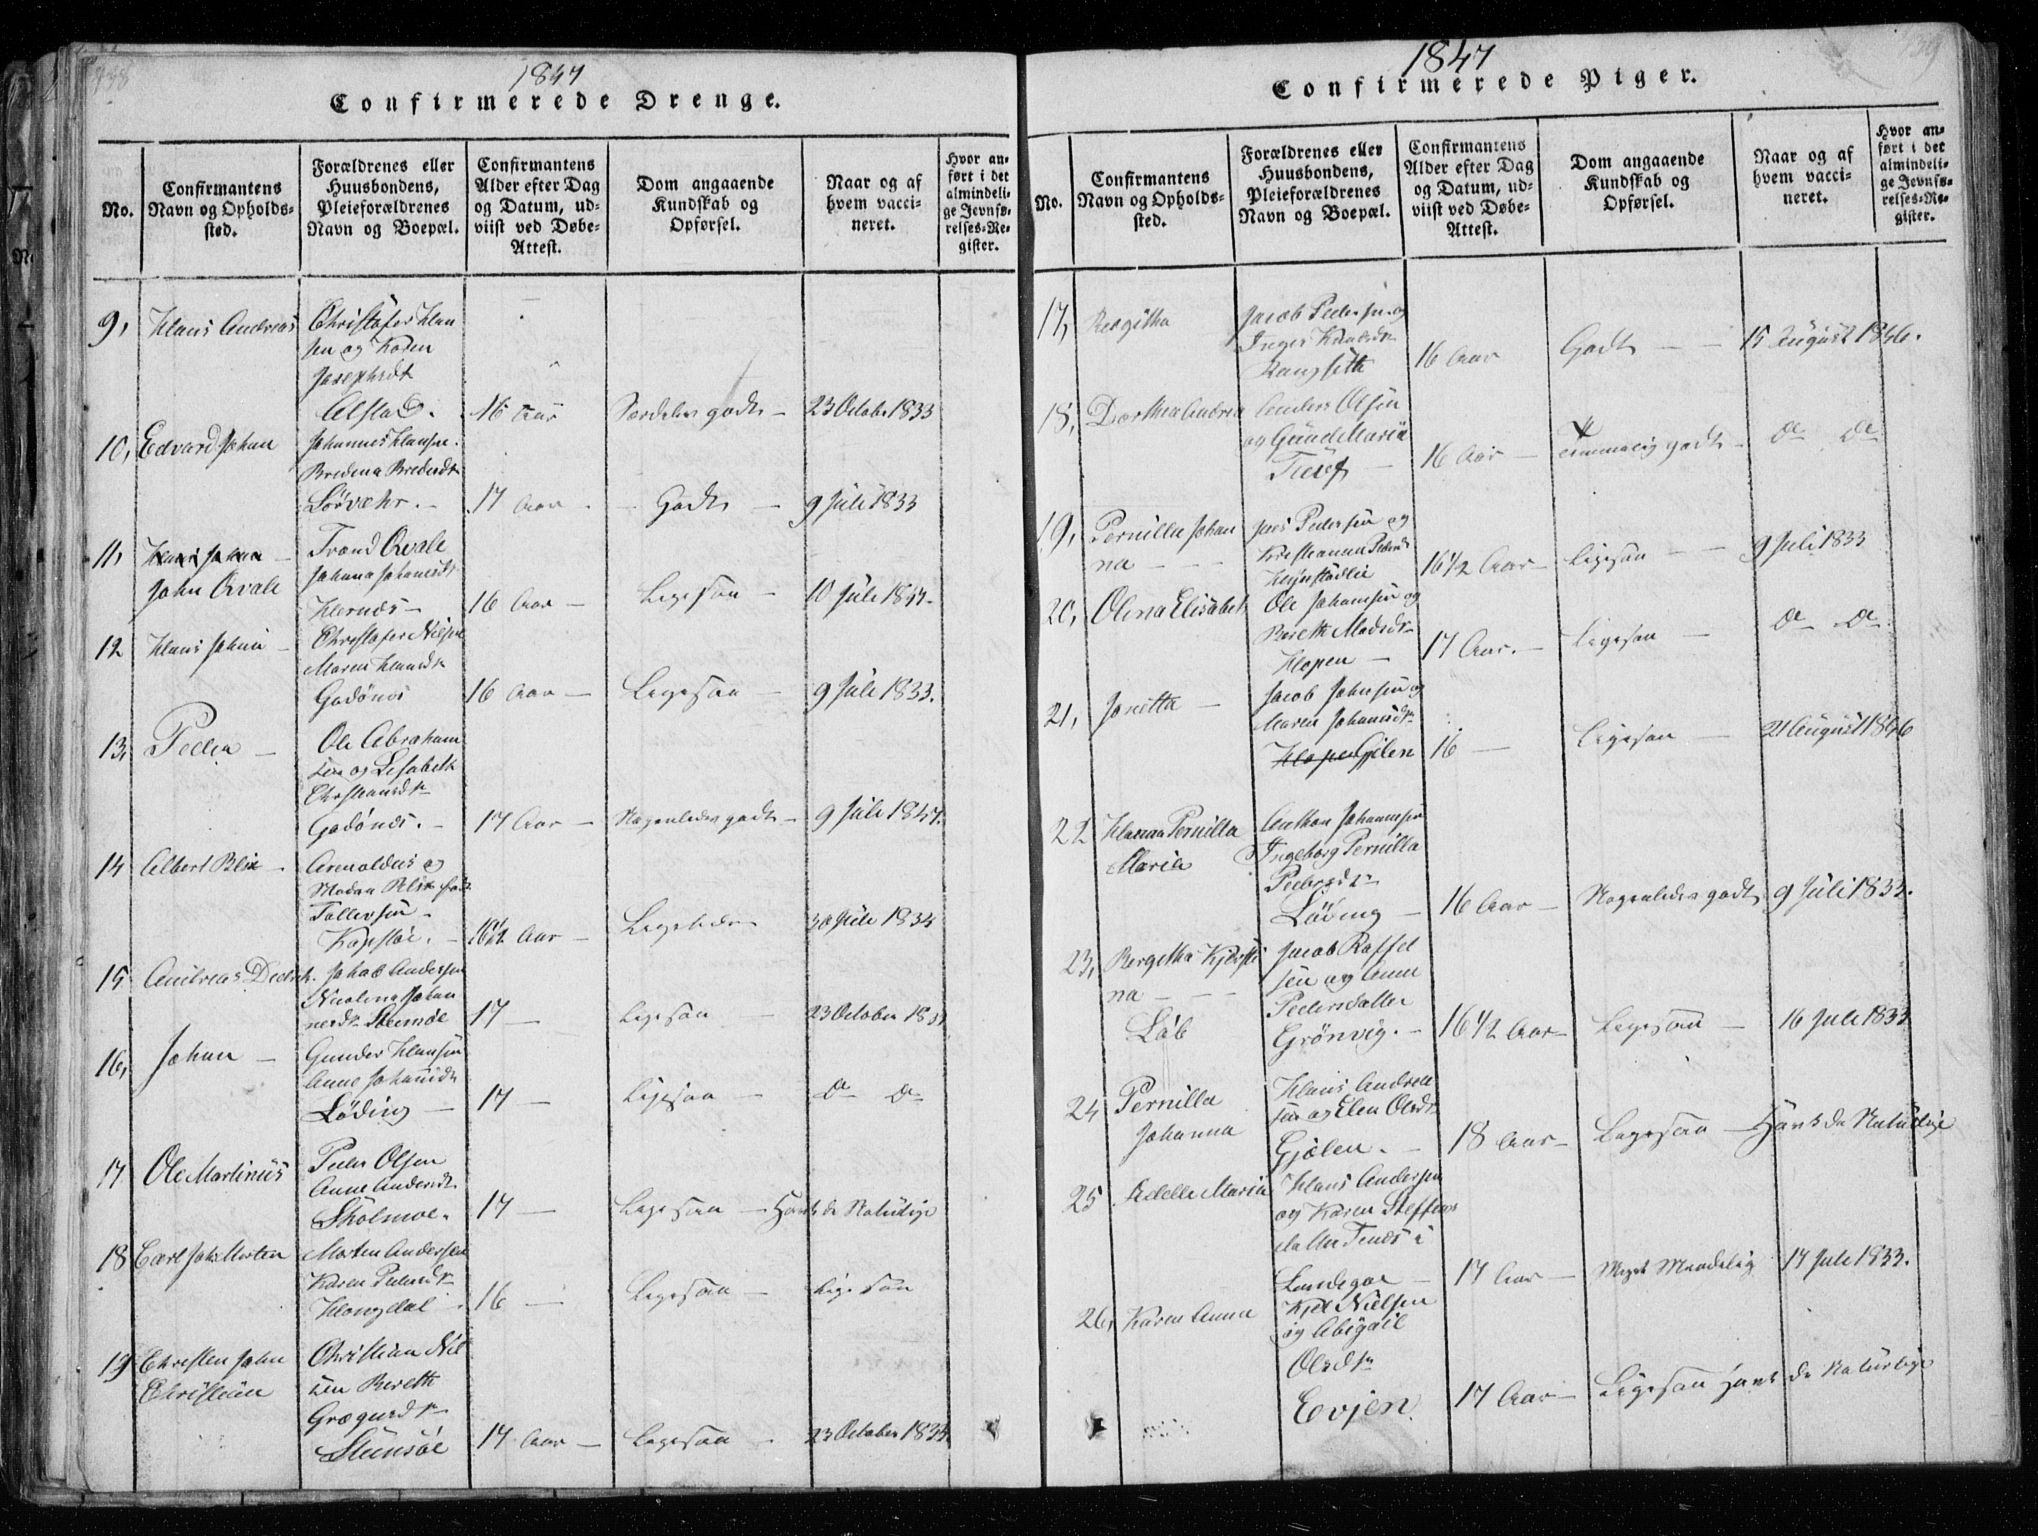 1847
Confirmerede Drenge.
No.
Confirmantens Navn og Opholds-sted.
Forældrenes eller Huusbondens, Pleieforældrenes Navn og Boepæl.
Confirmantens Alder efter Dag og Datum, ud-viist ved Døbe-Attest.
Dom angaaende Kundskab og Opførsel.
Naar og af hvem vacci-neret.
Hvor an-ført i det almindeli-ge Jevnfø-relses-Re-gister.
9, Hans Andreas
Christofer Han
sen og Karen
Josephsdt
Alstad. 16 Aar Særdeles godt 23 Octobr 1833
10, Edvard Johan
Johannes Hansen
Bredena Bredesdt
Lørvehr. 17 Aar Godt 9 Juli 1833
11, Hans Johan
John Qvale
Trond Qvale
Johanna Johannesdt
Hernes 16 Aar Ligesaa 10 Juli 1847
12 Hans Johan
Christofer Nilsen
Maren Hansdt
Godønes 16 Aar Ligesaa 9 Juli 1833.
13, Peder
Ole Abraham
sen og Lisabeth
Christiansdtr
Godønes. 17 Aar Nogenledes godt 9 Juli 1847.
14 Albert Blix
Arnoldus og
Madam Blix født
Tollevsen
Kopstøe. 16 1/2 Aar Ligeledes 30 Juli 1834
15 Andreas Diedrik
Jakob Andersen
Nicolina Johan
nesdtr Steemoe 17 Ligesaa 23 October 1833
16, Johan
Gunder Hansen
Anne Johansdtr
Løding 17 Ligesaa do do
17 Ole Martinus
Peder Olsen
Anne Andersdt
Skolmoe. 17 Ligesaa Havt de Naturlige
18 Carl Joh: Morten
Morten Andersen
Karen Pedersdtr
Hongdal 16 Ligesaa Ligesaa
19 Christen John
Christian
Christian Nil
sen Bereth
Gregersdtr
Stensøe 17 Aar Ligesaa 23 October 1833.
1847
Confirmerede Piger.
No.
Confirmantens Navn og Opholds-sted.
Forældrenes eller Huusbondens, Pleieforældrenes Navn og Boepæl.
Confirmantens Alder efter Dag og Datum, ud-viist ved Døbe-Attest.
Dom angaaende Kundskab og Opførsel.
Naar og af hvem vacci-neret.
Hvor an-ført i det almindeli-ge Jevnfø-relses-Re-gister.
17, Bergitha
Jacob Pedersen og
Inger Knudsdtr
16 Aar Godt 15 August 1846.
18, Dorthea Andrea
Anders Olsen
og Gunde Maria
16 Aar Temmelig godt do do
19, Pernilla Johan
na
Jens Pedersen og
Kristianna Pedersdt
16 1/2 Aar Ligesaa 9 Juli 1833
20, Olena Elisabet
Ole Johansen og
Bereth Madsdtr
Hopen 17 Aar. Ligesaa do do
21, Jonetta
Jacob Johnsen og
Maren Johansdtr
Hopen Gjelen 16 Ligesaa 21 August 1846
22 Hanna Pernilla
Maria
Anthon Johannsen
Ingeborg Pernilla
Pedersdtr
Løding 16 Aar Nogenledes godt 9 Juli 1833.
23, Bergitha Kjersti
na
Løb
Jacob Raffel
sen og Anne
Pedersdatter
Grønvig. 16 1/2 Aar Ligesaa 16 Juli 1833
24 Pernilla
Johanna
Hans Andrea
sen og Elen Olsdtr
Gjølen. 18 Aar Ligesaa Havt de Naturlige
25 Adelle Maria
Hans Andersen
og Karen Steffens
Lundegoe 17 Aar Meget Maadelig 17 Juli 1833.
26, Karen Anna
Kjel Nielsen
og Abigael
Olsdtr
Evjen 17 Aar Ligesaa Havt de Naturlige